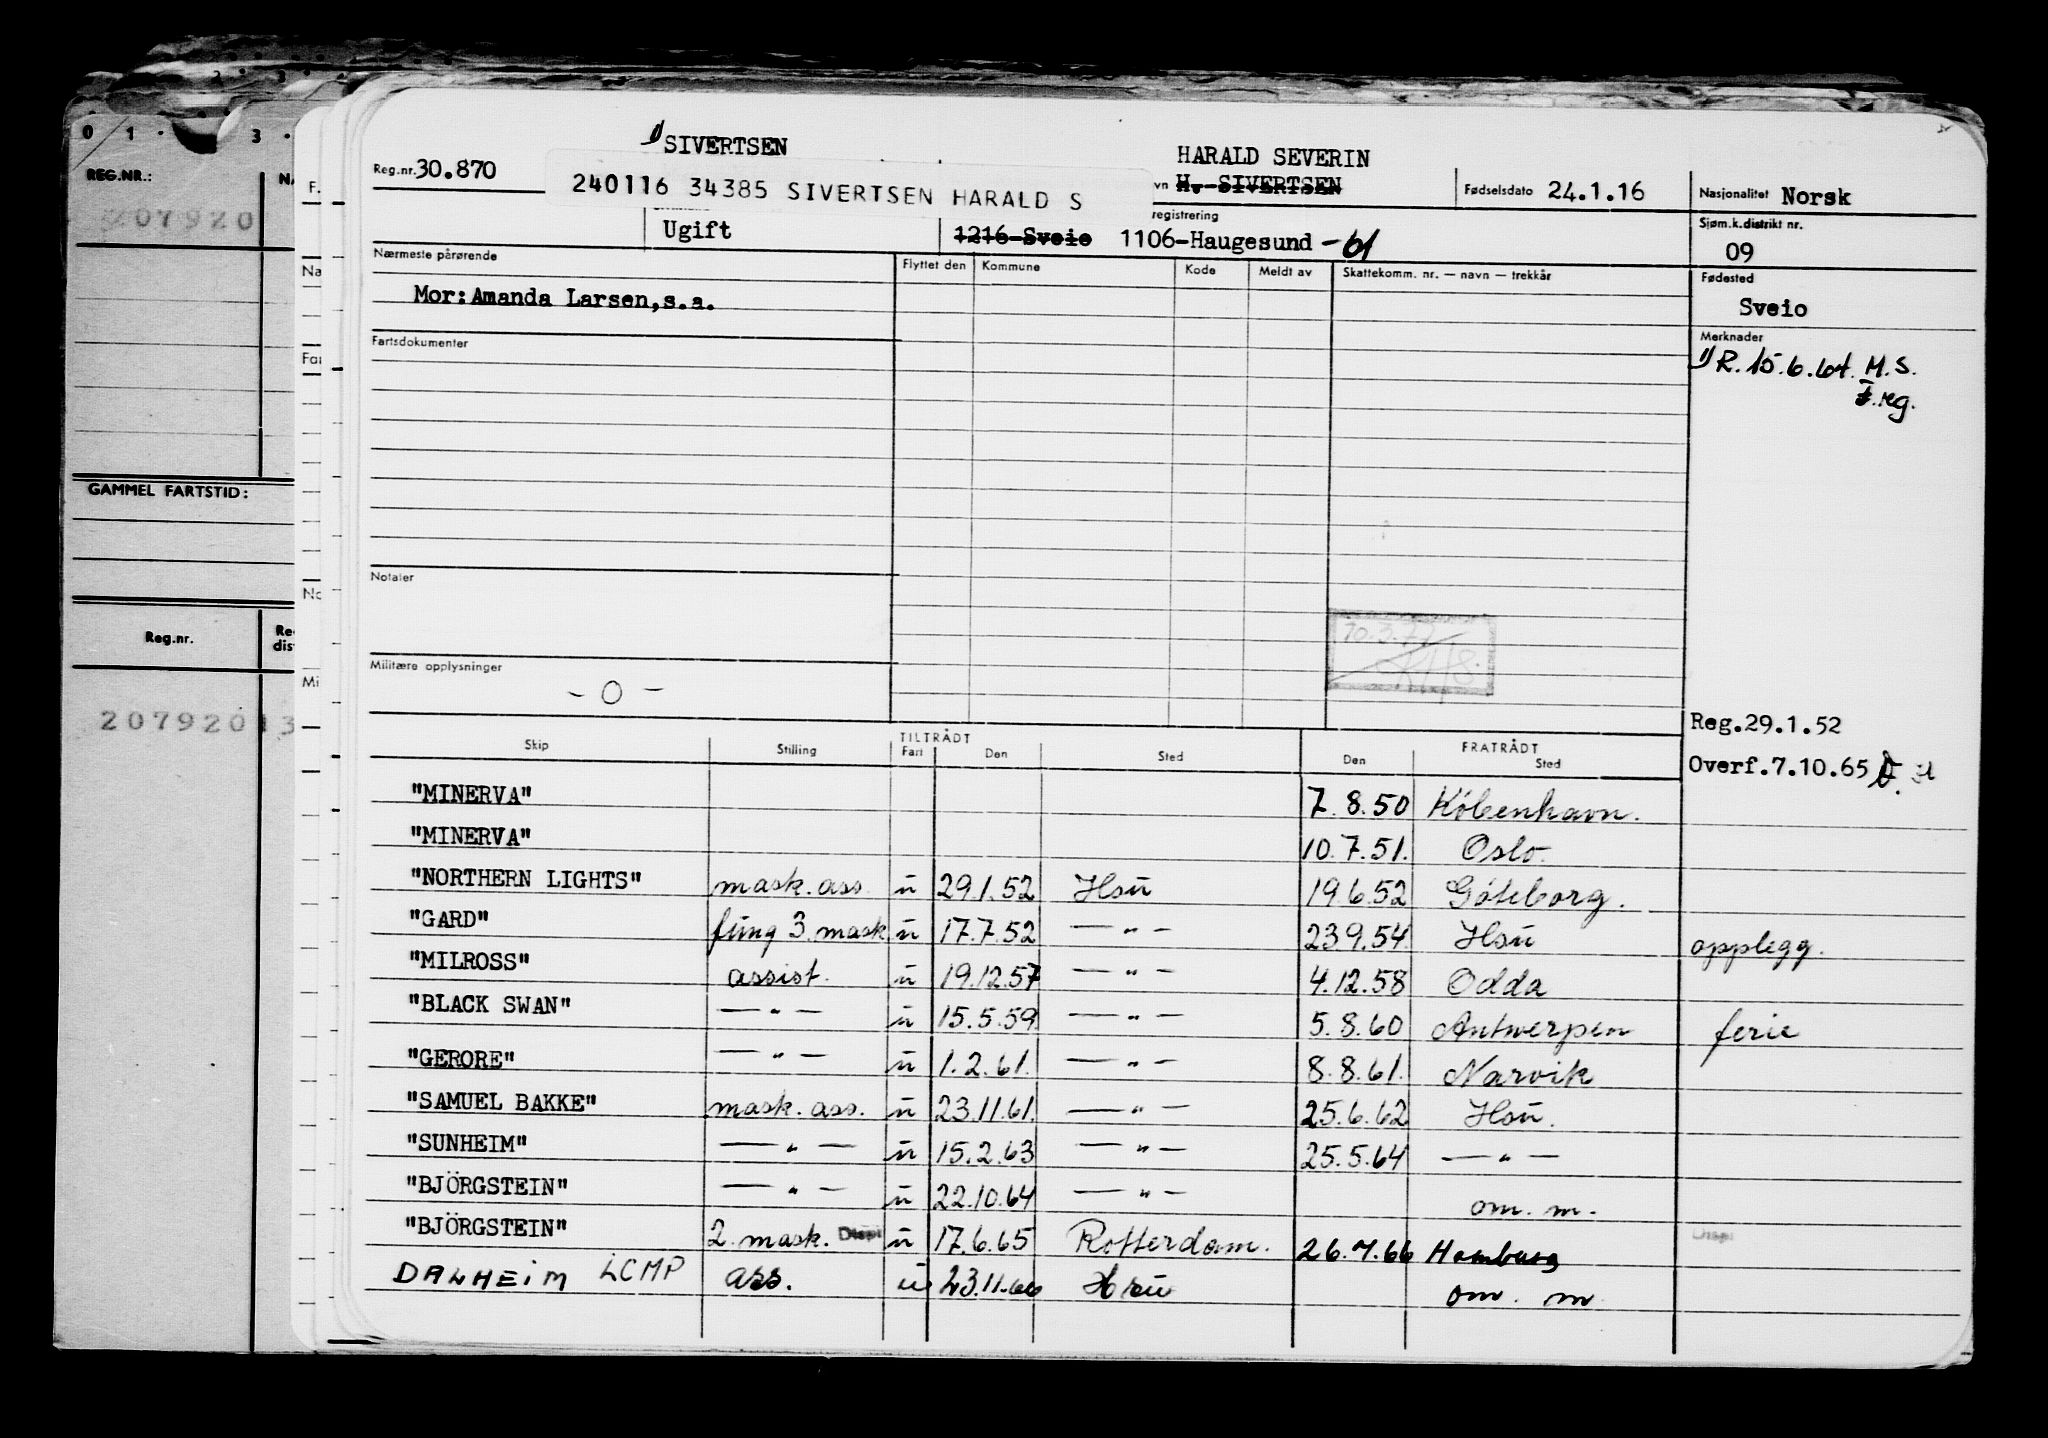 0 1 3
REG.NR.:
207920
GAMMEL FARTSTID:
Reg.nr.
207920 13
1) SIVERTSEN
HARALD SEVERIN
Reg.nr. 30.870
240116 34385 SIVERTSEN HARALD S
vn H. SIVERTSEN
Fødselsdato 24.1.16
Nasjonalitet Norsk
Ugift
registrering
1216-Sveio 1106-Haugesund -61
Sjøm.k.distrikt nr.
09
Nærmeste pårørende
Flyttet den Kommune Kode Meldt av Skattekomm. nr. — navn — trekkår
Fødested
Mor: Amanda Larsen, s.a.
Sveio
Fartsdokumenter
Merknader
1) R. 15.6.64. M.S.
reg.
Notater
10.3.77
Militære opplysninger
- 0 -
Reg.29.1.52
Overf.7.10.65
Skip Stilling TILTRÅDT Fart Den Sted FRATRÅDT Den Sted
"MINERVA" 7.8.50 København.
"MINERVA" 10.7.51. Oslo.
"NORTHERN LIGHTS" mask. ass. u 29.1.52 Hsu 19.6.52 Göteborg.
"GARD" fung 3. mask u 17.7.52 — " — 23.9.54 Hsu opplegg.
"MILROSS" assist. u 19.12.57 — " — 4.12.58 Odda
"BLACK SWAN" — " — u 15.5.59 — " — 5.8.60 Antwerpen ferie
"GERORE" — " — u 1.2.61. — " — 8.8.61. Narvik
"SAMUEL BAKKE" mask. ass. u 23.11.61. — " — 25.6.62 Hsu.
"SUNHEIM" — " — u 15.2.63 — " — 25.5.64 — " —
"BJÖRGSTEIN" — " — u 22.10.64 — " — om. m.
"BJÖRGSTEIN" 2. mask. Disp u 17.6.65 Rotterdam. 26.7.66 Hamburg
DALHEIM LCMP ass. u 23.11.66 Hsu om. m